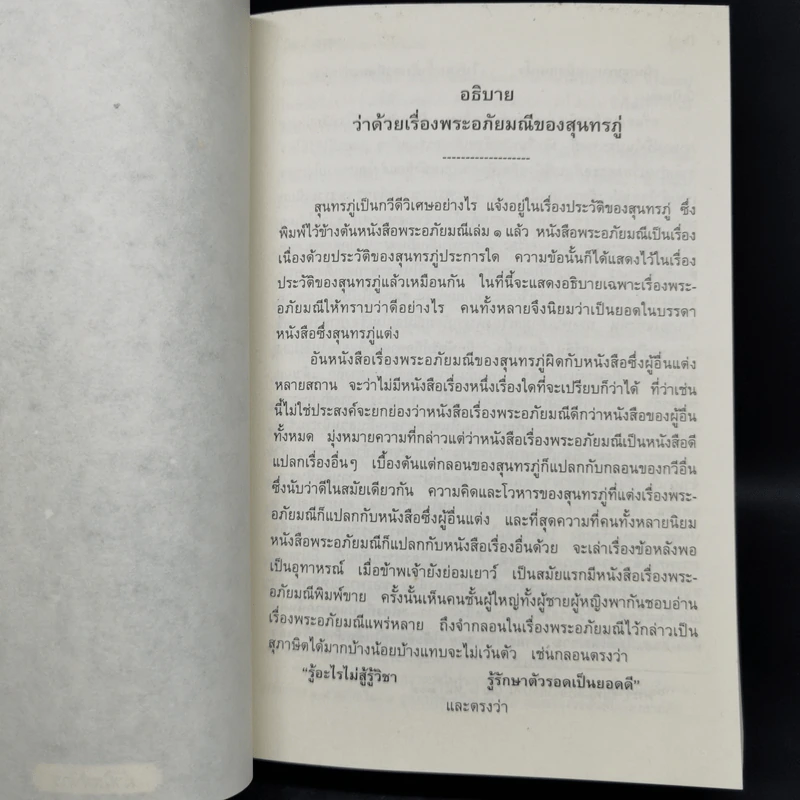 อธิบาย
ว่าด้วยเรื่องพระอภัยมณีของสุนทรภู่
สุนทรภู่เป็นกวีดีวิเศษอย่างไร แจ้งอยู่ในเรื่องประวัติของสุนทรภู่ ซึ่ง
พิมพ์ไว้ข้างต้นหนังสือพระอภัยมณีเล่ม ๑ แล้ว หนังสือพระอภัยมณีเป็นเรื่อง
เนื่องด้วยประวัติของสุนทรภู่ประการใด ความข้อนั้นก็ได้แสดงไว้ในเรื่อง
ประวัติของสุนทรภู่แล้วเหมือนกัน ในที่นี้จะแสดงอธิบายเฉพาะเรื่องพระ-
อภัยมณีให้ทราบว่าดีอย่างไร คนทั้งหลายจึงนิยมว่าเป็นยอดในบรรดา
หนังสือซึ่งสุนทรภู่แต่ง
อันหนังสือเรื่องพระอภัยมณีของสุนทรภู่ผิดกับหนังสือซึ่งผู้อื่นแต่ง
หลายสถาน จะว่าไม่มีหนังสือเรื่องหนึ่งเรื่องใดที่จะเปรียบก็ว่าได้ ที่ว่าเช่น
นี้ไม่ใช่ประสงค์จะยกย่องว่าหนังสือเรื่องพระอภัยมณีดีกว่าหนังสือของผู้อื่น
ทั้งหมด มุ่งหมายความที่กล่าวแต่ว่าหนังสือเรื่องพระอภัยมณีเป็นหนังสือดี
แปลกเรื่องอื่นๆ เบื้องต้นแต่กลอนของสุนทรภู่ก็แปลกกับกลอนของกวีอื่น
ซึ่งนับว่าดีในสมัยเดียวกัน ความคิดและโวหารของสุนทรภู่ที่แต่งเรื่องพระ-
อภัยมณีก็แปลกกับหนังสือซึ่งผู้อื่นแต่ง และที่สุดความที่คนทั้งหลายนิยม
หนังสือพระอภัยมณีก็แปลกกับหนังสือเรื่องอื่นด้วย จะเล่าเรื่องข้อหลังพอ
เป็นอุทาหรณ์ เมื่อข้าพเจ้ายังย่อมเยาว์ เป็นสมัยแรกมีหนังสือเรื่องพระ-
อภัยมณีพิมพ์ขาย ครั้งนั้นเห็นคนชั้นผู้ใหญ่ทั้งผู้ชายผู้หญิงพากันชอบอ่าน
เรื่องพระอภัยมณีแพร่หลาย ถึงจำกลอนในเรื่องพระอภัยมณีไว้กล่าวเป็น
สุภาษิตได้มากบ้างน้อยบ้างแทบจะไม่เว้นตัว เช่นกลอนตรงว่า
"รู้อะไรไม่สู้รู้วิชา รู้รักษาตัวรอดเป็นยอดดี"
และตรงว่า